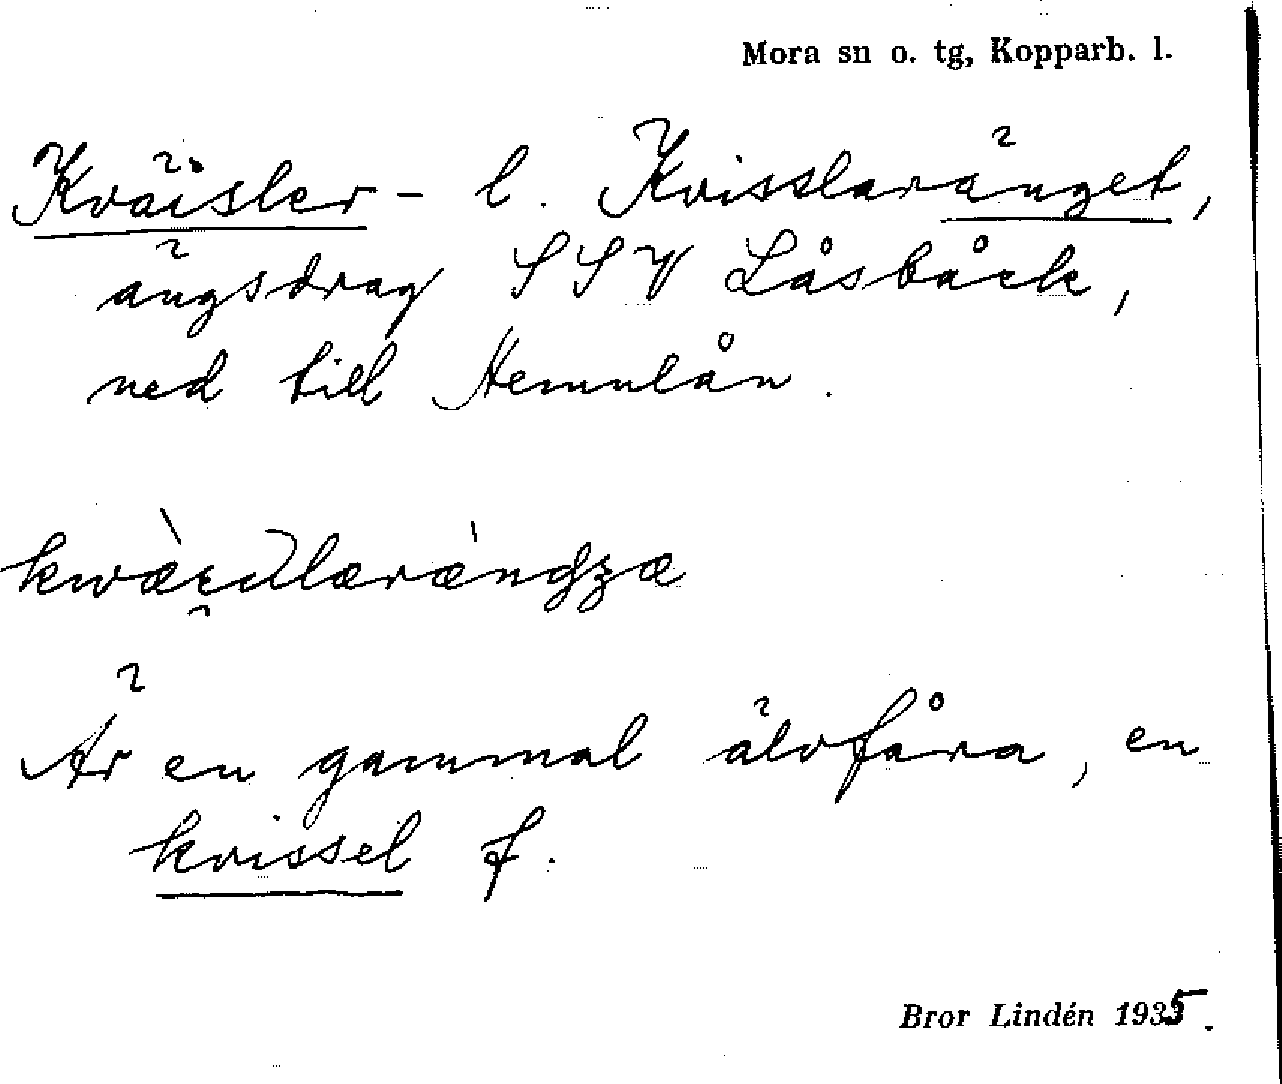 Mora sn o. tg, Kopparb. l.
Kväisler- l. Kvisslaränget,
ängsdrag SSV Låsbåck,
ned till Hemulån.
Är en gammal älvfåra, en
kvissel f.
Bror Lindén 1935.